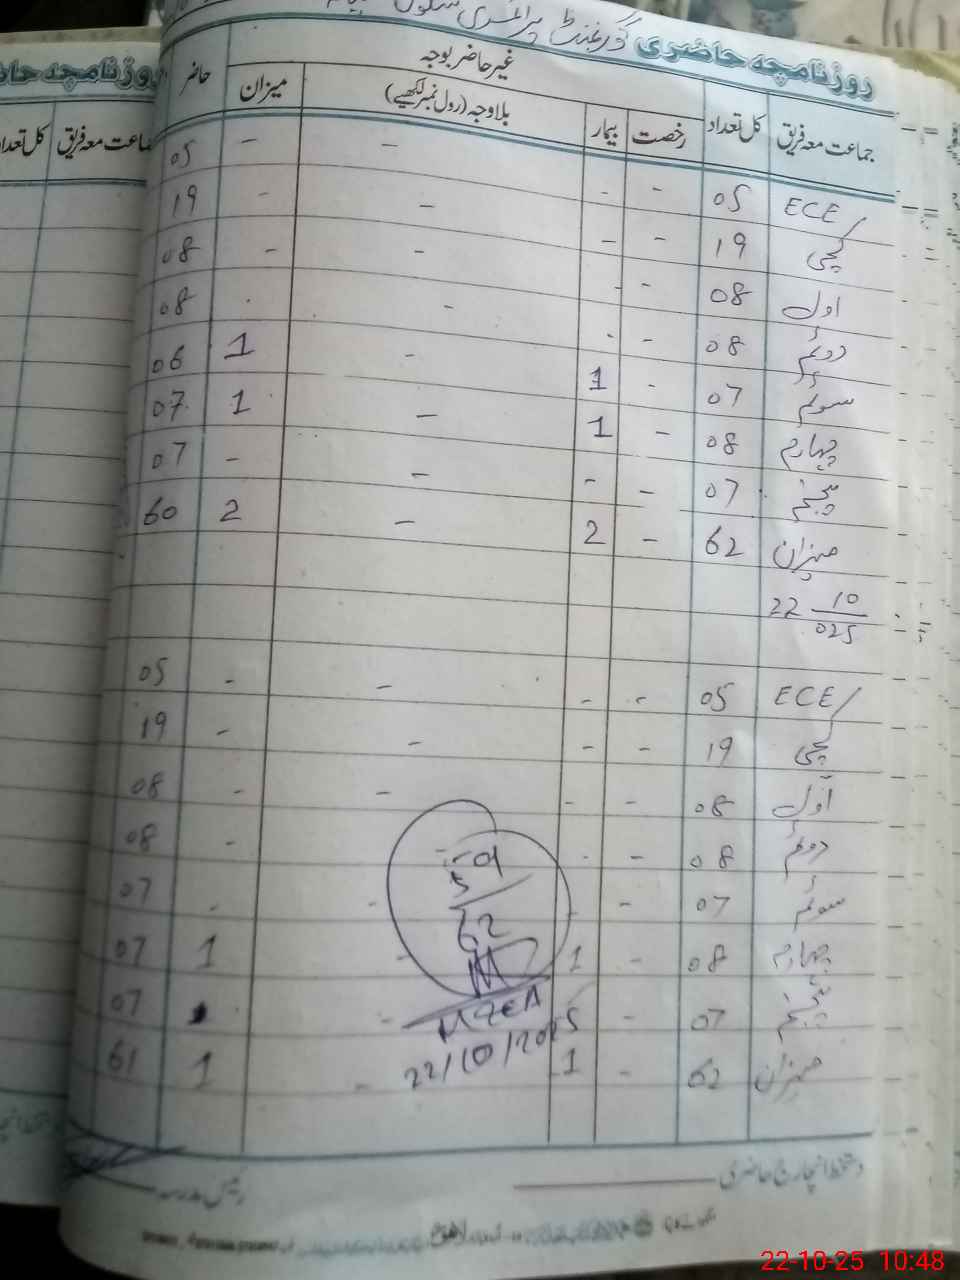 روزنامچہ حاضری گورنمنٹ پرائمری سکول
جماعت معہ فریق کل تعداد غیر حاضر بوجہ حاضر
رخصت بیمار بلاوجہ (رول نمبر لکھیے) میزان
ECE / 05 - - - - 05
کچی 19 - - - - 19
اول 08 - - - - 08
دوئم 08 - - - - 08
سوئم 07 - 1 - 1 06
چہارم 08 - 1 - 1 07
پنجم 07 - - - - 07
میزان 62 - 2 - 2 60
22 10/025
ECE / 05 - - - - 05
کچی 19 - - - - 19
اول 08 - - - - 08
دوئم 08 - - - - 08
سوئم 07 - - - - 07
چہارم 08 - 1 - 1 07
پنجم 07 - - 07
میزان 62 - 1 - 1 61
59
62
22/10/2025
دستخط انچارج حاضری
رئیس مدرسہ
لاہور
روزنامچہ حاضری
جماعت معہ فریق کل تعداد
22-10-25 10:48